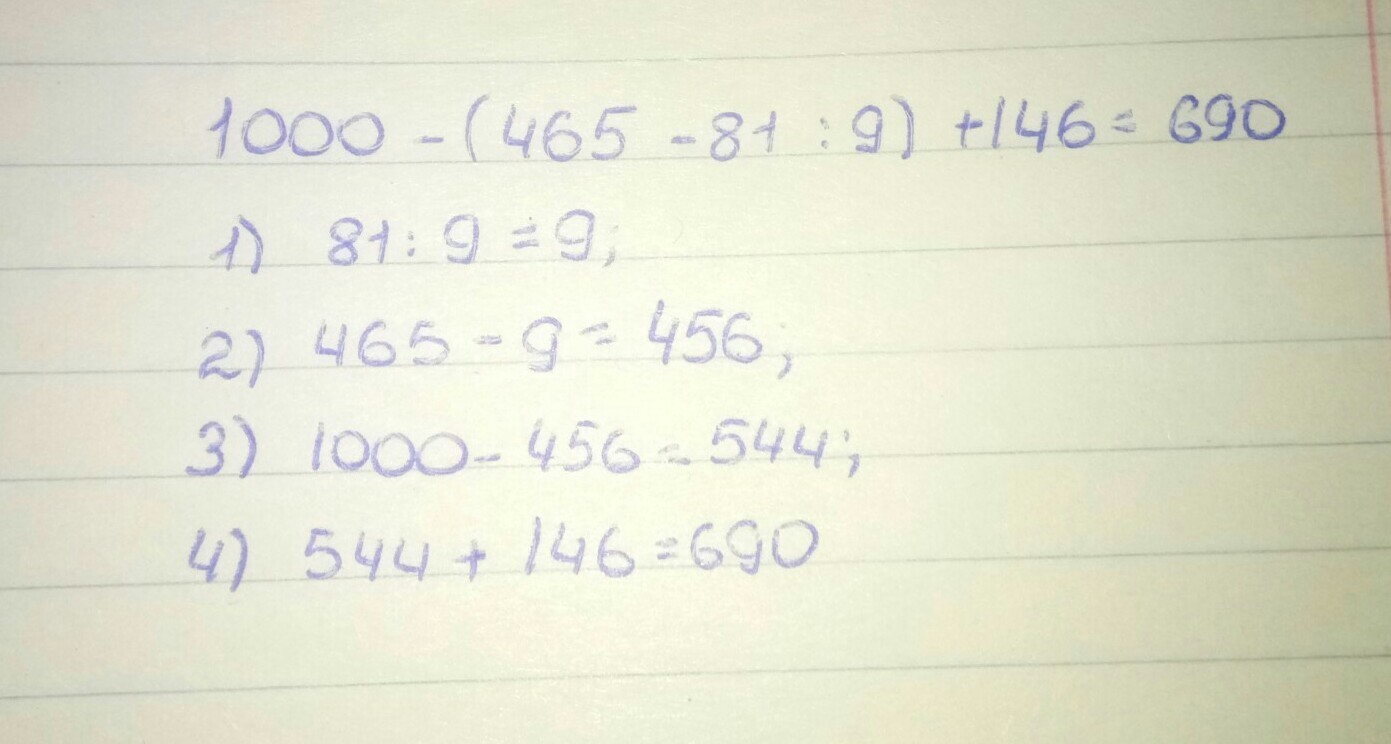 1000 - (465 - 81 : 9) + 146 = 690
1) 81 : 9 = 9;
2) 465 - 9 = 456;
3) 1000 - 456 = 544;
4) 544 + 146 = 690